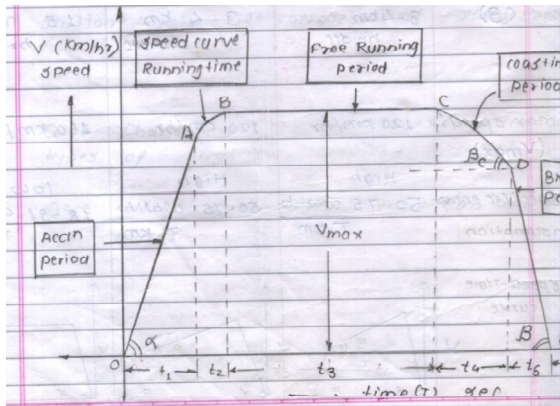 V (Km/hr)
speed
speed curve
Running time
Free Running
period
coastin
period
A
B
C
βc
D
Br
pe
Accln
period
Vmax
O
α
β
t1
t2
t3
t4
t5
time(T) sec